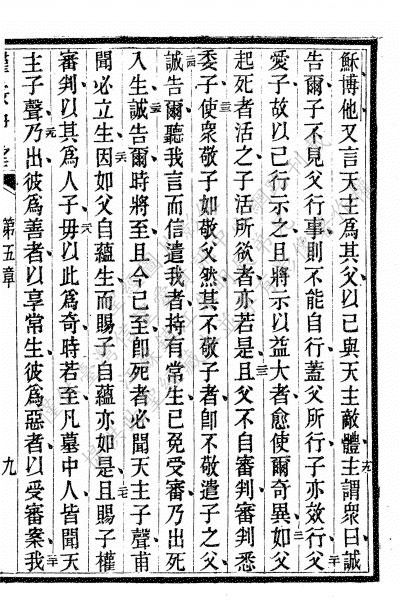 穌博他又言天主為其父以已與天主敵體主謂衆曰誠
告爾子不見父行事則不能自行蓋父所行子亦效行父
愛子故以已行示之且將示以益大者愈使爾奇異如父
起死者活之子活所欲者亦若是且父不自審判審判悉
委子使衆敬子如敬父然其不敬子者卽不敬遣子之父
誠告爾聽我言而信遣我者持有常生已免受審乃出死
入生誠告爾時將至且今已至卽死者必聞天主子聲甫
聞必立生因如父自蘊生而賜子自蘊亦如是且賜子權
審判以其為人子毋以此為奇時若至凡墓中人皆聞天
主子聲乃出彼為善者以享常生彼為惡者以受審案我
第五章
九